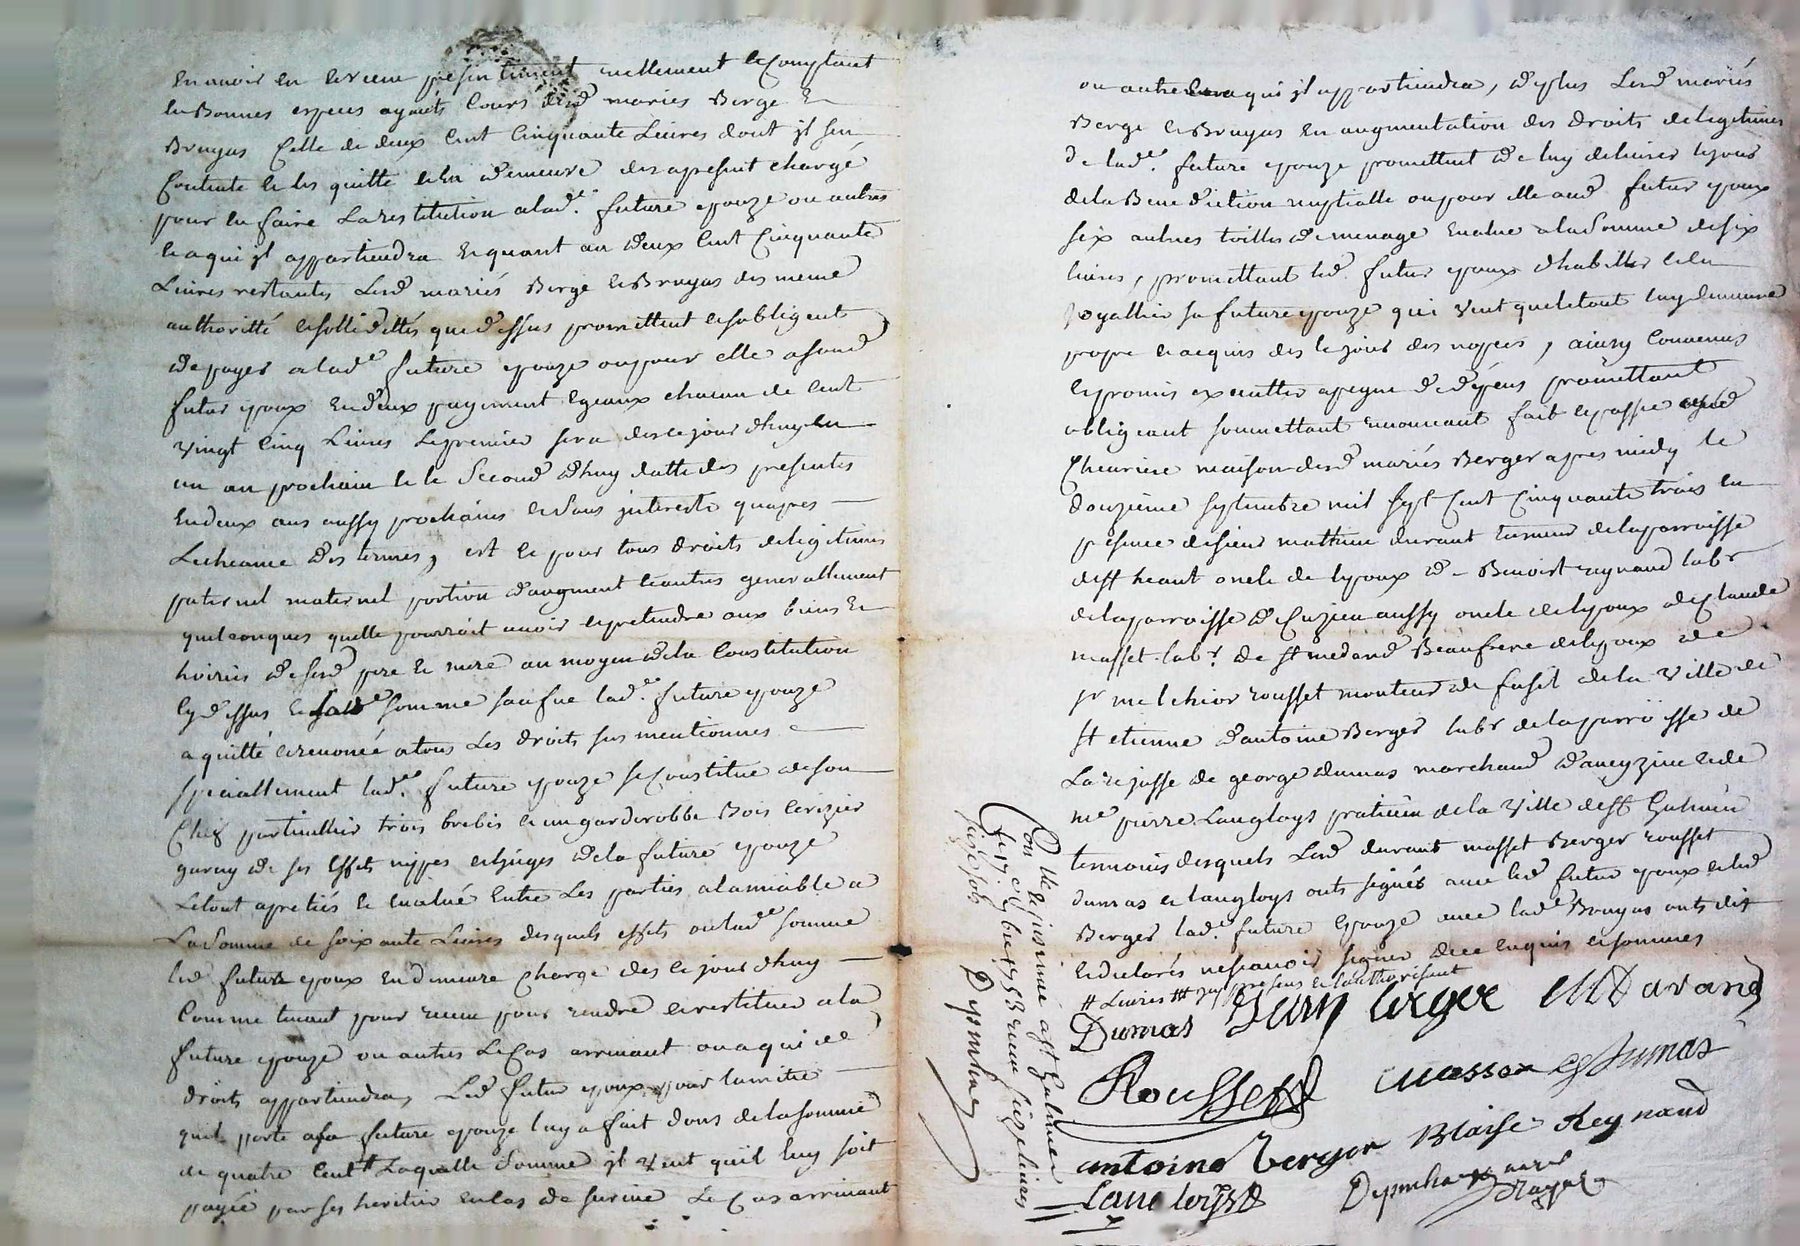 en avoir eu et receu presentement reellement et Comptant
en Bonnes especes ayants Cours desd maries Berge et
Bruyas Celle de deux Cent Cinquante Livres dont il s'en
Contente et les quitte et en demeure des apresent chargé
pour en faire La restitution a lade future epouze ou autres
et a qui il appartiendra Et quant au deux Cent Cinquante
Livres restantes Lesd mariés Berge et Bruyas des meme
authoritté et sollidittés que dessus promettent et sobligent
de payer a lade future epouze ou pour elle a sond
futur epoux En deux payement Egeaux chacun de Cent
vingt Cinq Livres Le premier sera des ce jour dhuy en
un an prochain et le Second dhuy datte des presentes
En deux ans aussy prochains et Sans jnterests qu'apres
Lecheance des termes, est ce pour tous droits de legitimes
paternel maternel portion d'augment et autres generallement
quelconques quelle pourroit avoir et pretendre aux biens et
hoiries de sesd pere et mere au moyen de la Constitution
Cy dessus et de lade somme sauf ue lade future epouze
a quitté et renoncé a tous Les droits sus mentionnes
speciallement lade future epouze se Constitue de son
Chef particullier trois brebis et un garderobbe Bois Cerizier
garny de ses Effets nippes et linges de la future epouze
Le tout apretiés et evalué Entre Les parties a lamiable a
La Somme de soixante Livres desquels effets ou lade somme
led futur epoux en demeure Chargé des ce jour dhuy
Comme tenant pour receu pour rendre et restituer a la
future epouze ou autres Le Cas arrivant ou a qui de
droits appartiendra, Led futur epoux pour lamitié
quil porte a sa future epouze luy a fait dons de la somme
de quatre Cent # Laquelle Somme il veut quil luy soit
payée par ses heritier En Cas de survie Le Cas arrivant
ou autre a qui il appartiendra, de plus Lesd mariés
Berge et Bruyas en augmentation des droits de legitimes
de lade future epouze promettent de luy delivrer le jour
de la Benediction nuptialle ou pour elle aud futur epoux
six autres toilles de menage Evalué a la Somme de six
livres, promettant led futur epoux dhabiller et en
joyallier sa future epouze qui veut que le tout luy demeure
propre et acquis des le jour des nopces, ainsy Convenus
et promis executter a peyne de depens promettant
obligeant soumettant renonceant fait et passé aud
Cheuriere maison desd mariés Berger apres midy le
douzieme septembre mil sept Cent Cinquante trois en
presence de sieur mathieu durant tissieur de la parroisse
de st heant oncle de lepoux de Benoist reynaud labr
de la parroisse de Cuzieu aussy oncle de lepoux de Claude
masset labr de st medard Beaufrere de lepoux de
sr melchior rousset monteur de fusil de la ville de
st etienne d'antoine Berger labr de la parroisse de
La rejasse de george dumas marchand d'aveyzieu et de
me pierre Langloys praticien de la ville de st Galmier
temoins desquels Lesd durant masset Berger rousset
dumas et langloys ont signés avec led futur epoux et led
Berger lade future Epouze avec lade Bruyas ont dit
et declarés ne scavoir signer de ce enquis et sommes
# Livres ## jcy presens et lauthorisant
Dumas Jean berger M Durand
Rousset masson G dumas
antoine berger Blaise Reynaud
Langloys
Depinhac
Conlle et jnsinué a st Galmier
le 17e 7bre 1753 receu seize livres
seize sols
Depinhac